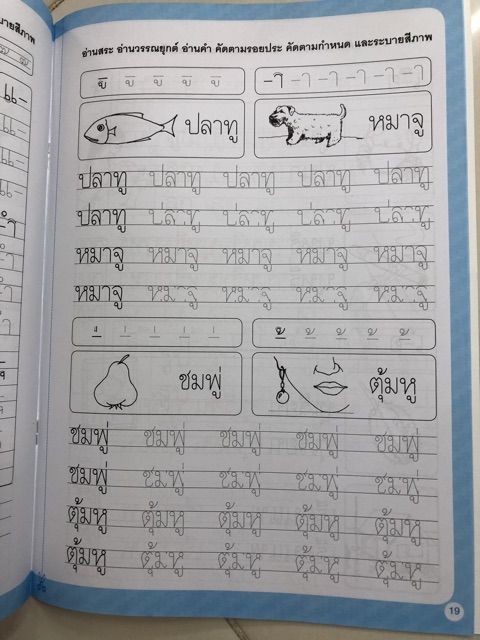 อ่านสระ อ่านวรรณยุกต์ อ่านคำ คัดตามรอยประ คัดตามกำหนด และระบายสีภาพ
-า -า -า -า -า -า
ปลาทู หมาจู
ปลาทู ปลาทู ปลาทู ปลาทู ปลาทู
ปลาทู ปลาทู ปลาทู ปลาทู ปลาทู
หมาจู หมาจู หมาจู หมาจู หมาจู
หมาจู หมาจู หมาจู หมาจู หมาจู
ชมพู่ ตุ้มหู
ชมพู่ ชมพู่ ชมพู่ ชมพู่ ชมพู่
ชมพู่ ชมพู่ ชมพู่ ชมพู่ ชมพู่
ตุ้มหู ตุ้มหู ตุ้มหู ตุ้มหู ตุ้มหู
ตุ้มหู ตุ้มหู ตุ้มหู ตุ้มหู ตุ้มหู
19